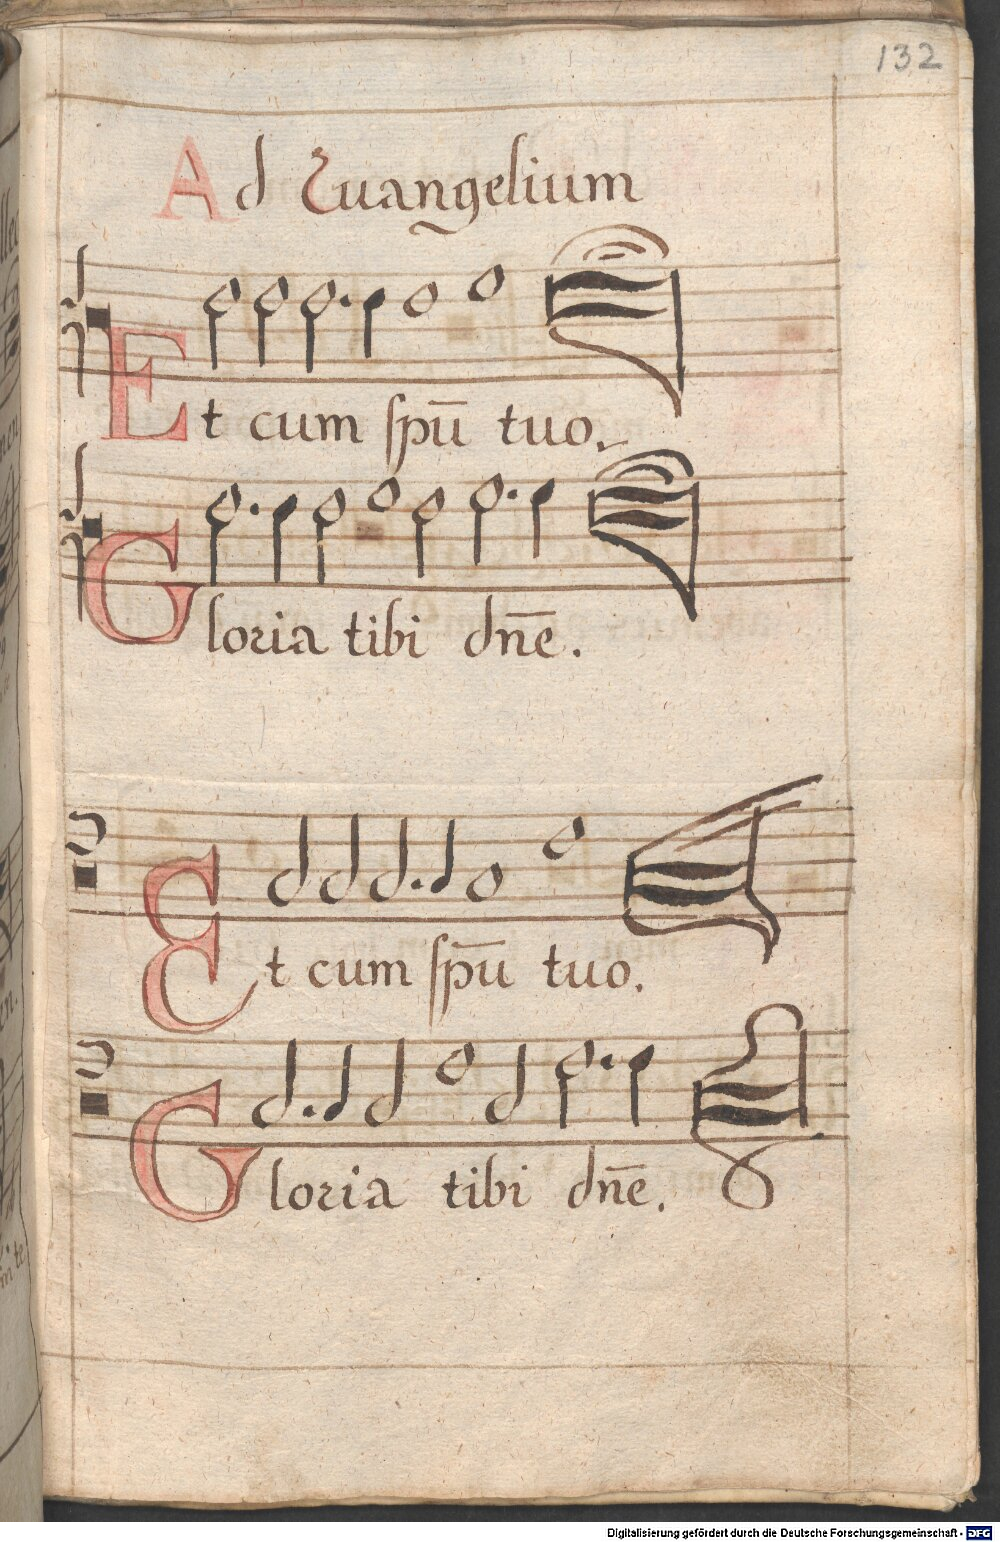 132
Ad Euangelium
Et cum spū tuo.
Gloria tibi dn̄e.
Et cum spū tuo.
Gloria tibi dn̄e.
Digitalisierung gefördert durch die Deutsche Forschungsgemeinschaft - DFG